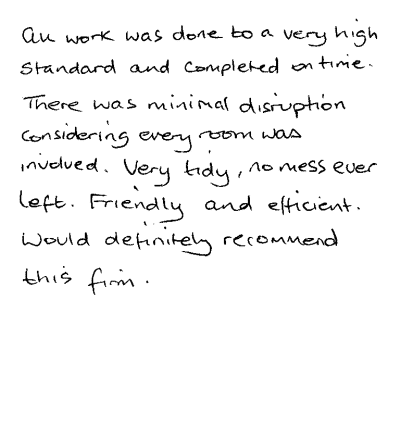 All work was done to a very high
standard and completed on time.
There was minimal disruption
considering every room was
involved. Very tidy, no mess ever
left. Friendly and efficient.
Would definitely recommend
this firm.